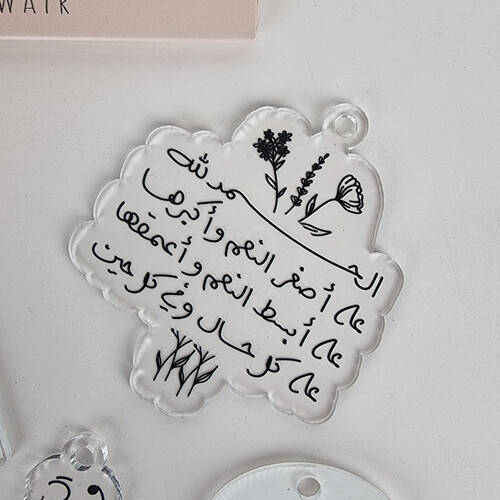 WAIR
الحمد لله
على أصغر النعم وأكبرها
على أبسط النعم وأعمقها
على كل حال وفي كل حين